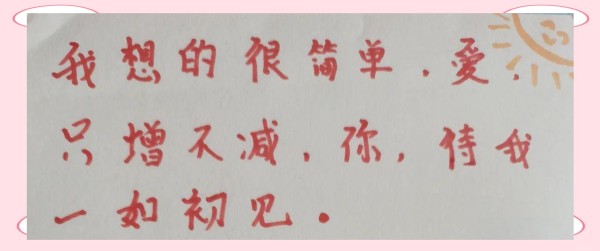 我想的很简单，愛，
只增不减，你，待我
一如初见。